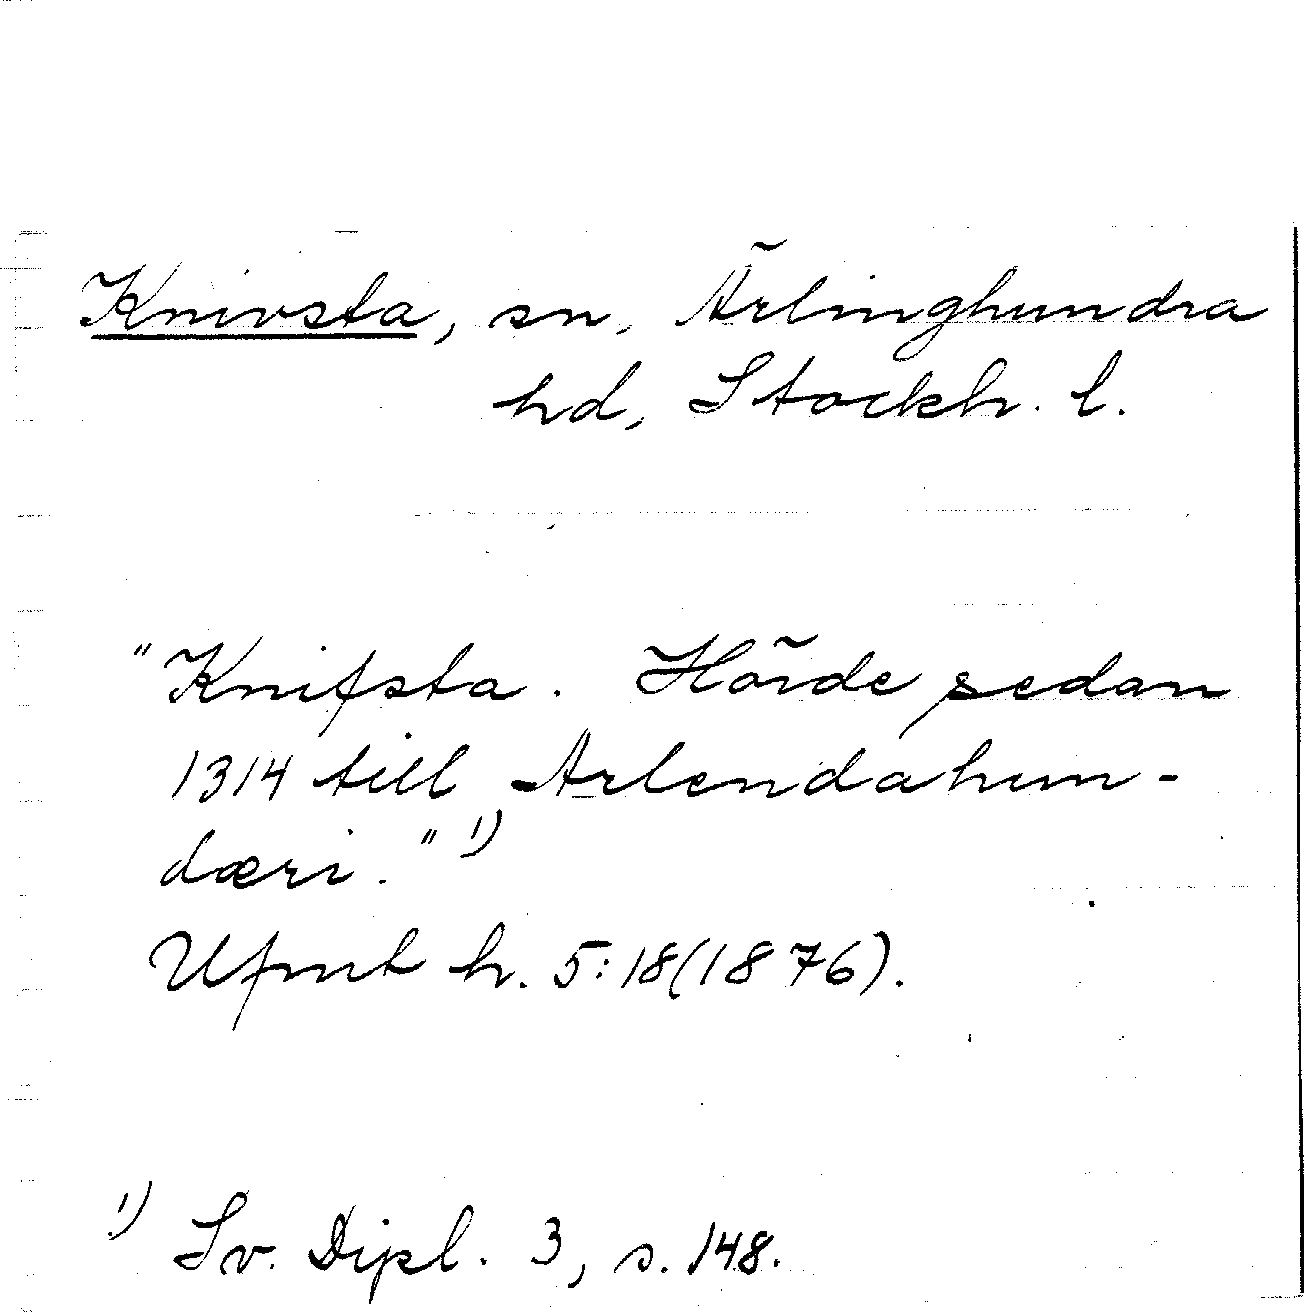 Knivsta, sn, Ärlinghundra
hd, Stockh. l.
"Knifsta. Hörde sedan
1314 till Arlendahun-
dæri." 1)
Ufmt h. 5:18(1876).
1) Sv. Dipl. 3, s. 148.